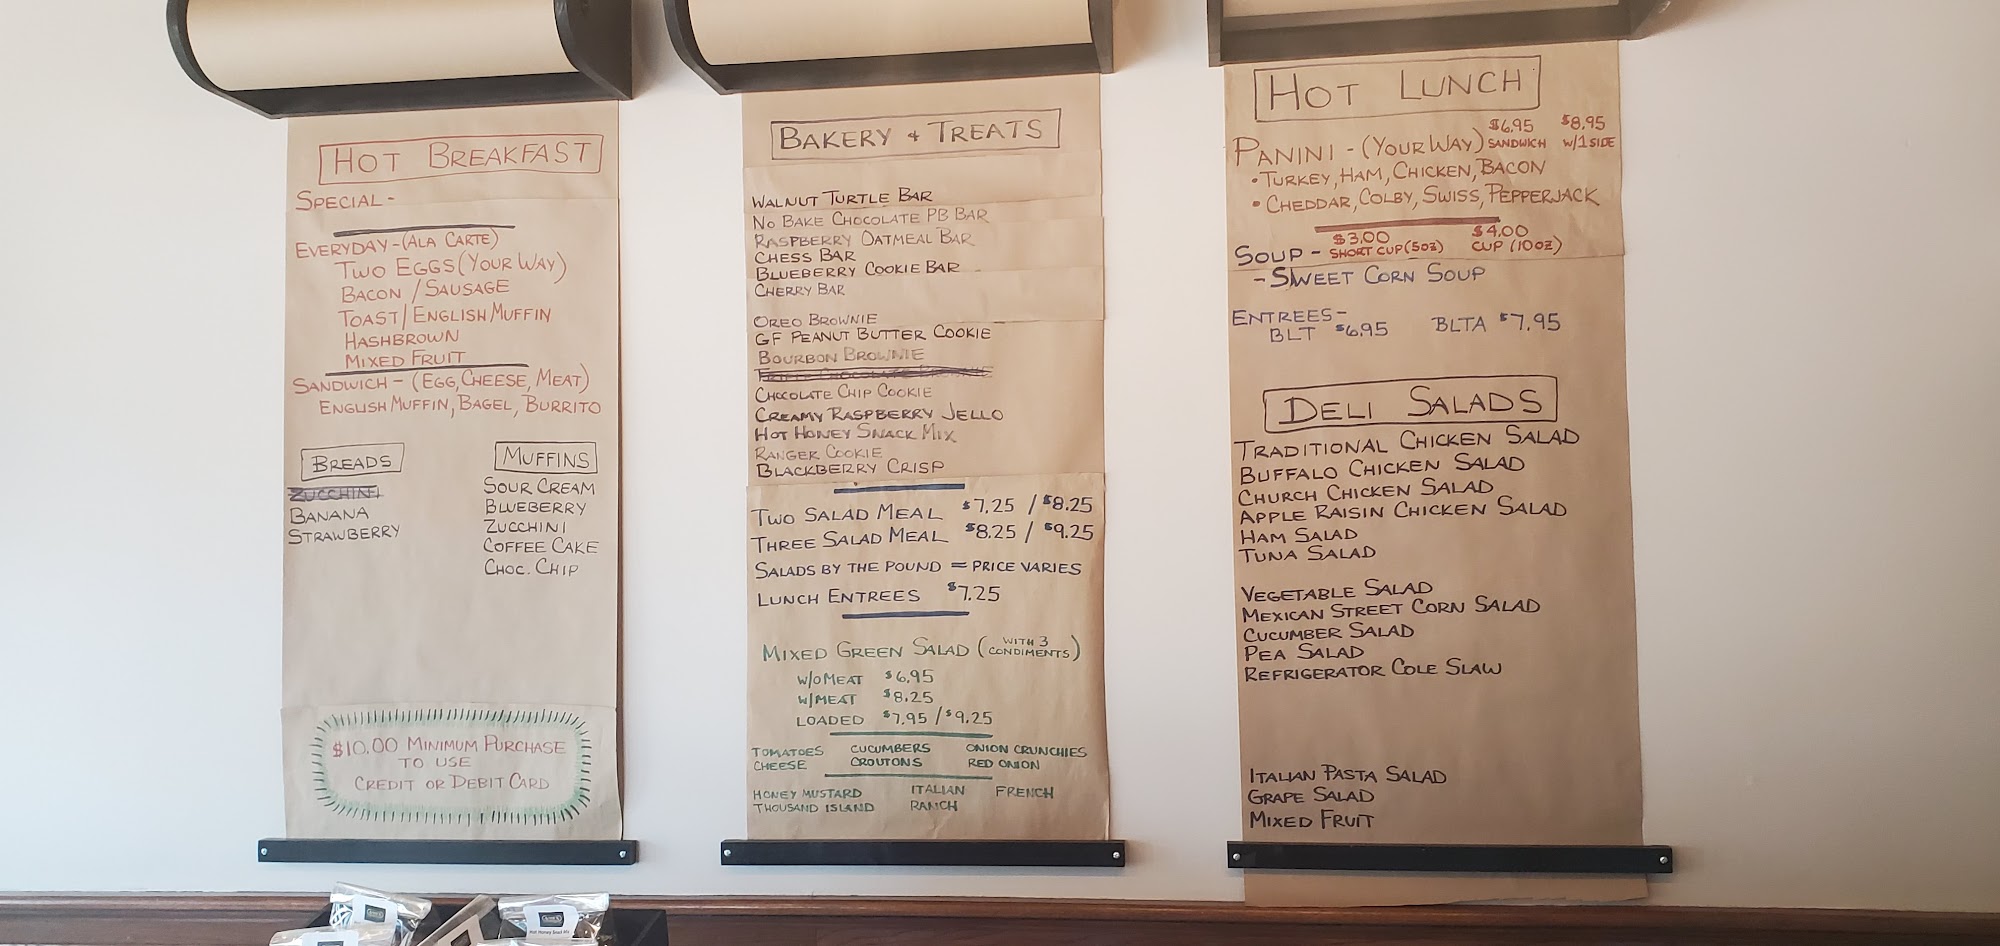 HOT BREAKFAST
SPECIAL -
EVERYDAY - (ALA CARTE)
TWO EGGS (YOUR WAY)
BACON / SAUSAGE
TOAST / ENGLISH MUFFIN
HASHBROWN
MIXED FRUIT
SANDWICH - (EGG, CHEESE, MEAT)
ENGLISH MUFFIN, BAGEL, BURRITO
BREADS
ZUCCHINI
BANANA
STRAWBERRY
MUFFINS
SOUR CREAM
BLUEBERRY
ZUCCHINI
COFFEE CAKE
CHOC. CHIP
$10.00 MINIMUM PURCHASE
TO USE
CREDIT OR DEBIT CARD
BAKERY + TREATS
WALNUT TURTLE BAR
NO BAKE CHOCOLATE PB BAR
RASPBERRY OATMEAL BAR
CHESS BAR
BLUEBERRY COOKIE BAR
CHERRY BAR
OREO BROWNIE
GF PEANUT BUTTER COOKIE
BOURBON BROWNIE
TRIPLE CHOCOLATE BROWNIE
CHOCOLATE CHIP COOKIE
CREAMY RASPBERRY JELLO
HOT HONEY SNACK MIX
RANGER COOKIE
BLACKBERRY CRISP
TWO SALAD MEAL $7.25 / $8.25
THREE SALAD MEAL $8.25 / $9.25
SALADS BY THE POUND = PRICE VARIES
LUNCH ENTREES $7.25
MIXED GREEN SALAD (WITH 3 CONDIMENTS)
W/O MEAT $6.95
W/MEAT $8.25
LOADED $7.95 / $9.25
TOMATOES CUCUMBERS ONION CRUNCHIES
CHEESE CROUTONS RED ONION
HONEY MUSTARD ITALIAN FRENCH
THOUSAND ISLAND RANCH
HOT LUNCH
$6.95 $8.95
PANINI - (YOUR WAY) SANDWICH W/1 SIDE
• TURKEY, HAM, CHICKEN, BACON
• CHEDDAR, COLBY, SWISS, PEPPERJACK
$3.00 $4.00
SOUP - SHORT CUP (5OZ) CUP (10OZ)
- SWEET CORN SOUP
ENTREES -
BLT $6.95 BLTA $7.95
DELI SALADS
TRADITIONAL CHICKEN SALAD
BUFFALO CHICKEN SALAD
CHURCH CHICKEN SALAD
APPLE RAISIN CHICKEN SALAD
HAM SALAD
TUNA SALAD
VEGETABLE SALAD
MEXICAN STREET CORN SALAD
CUCUMBER SALAD
PEA SALAD
REFRIGERATOR COLE SLAW
ITALIAN PASTA SALAD
GRAPE SALAD
MIXED FRUIT